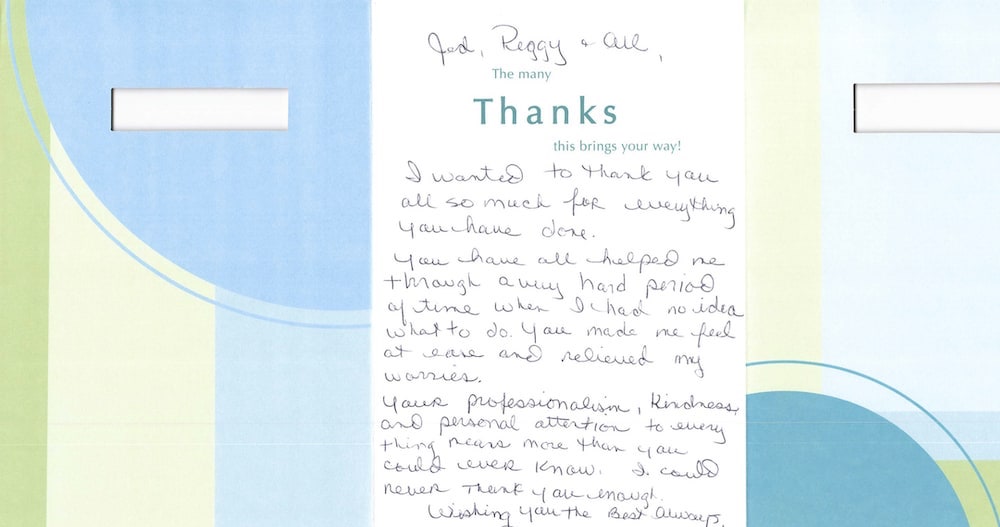 Jed, Peggy & All,
The many
Thanks
this brings your way!
I wanted to thank you
all so much for everything
you have done.
You have all helped me
through a very hard period
of time when I had no idea
what to do. You made me feel
at ease and relieved my
worries.
Your professionalism, kindness,
and personal attention to every
thing means more than you
could ever know. I could
never thank you enough.
Wishing you the Best Always,